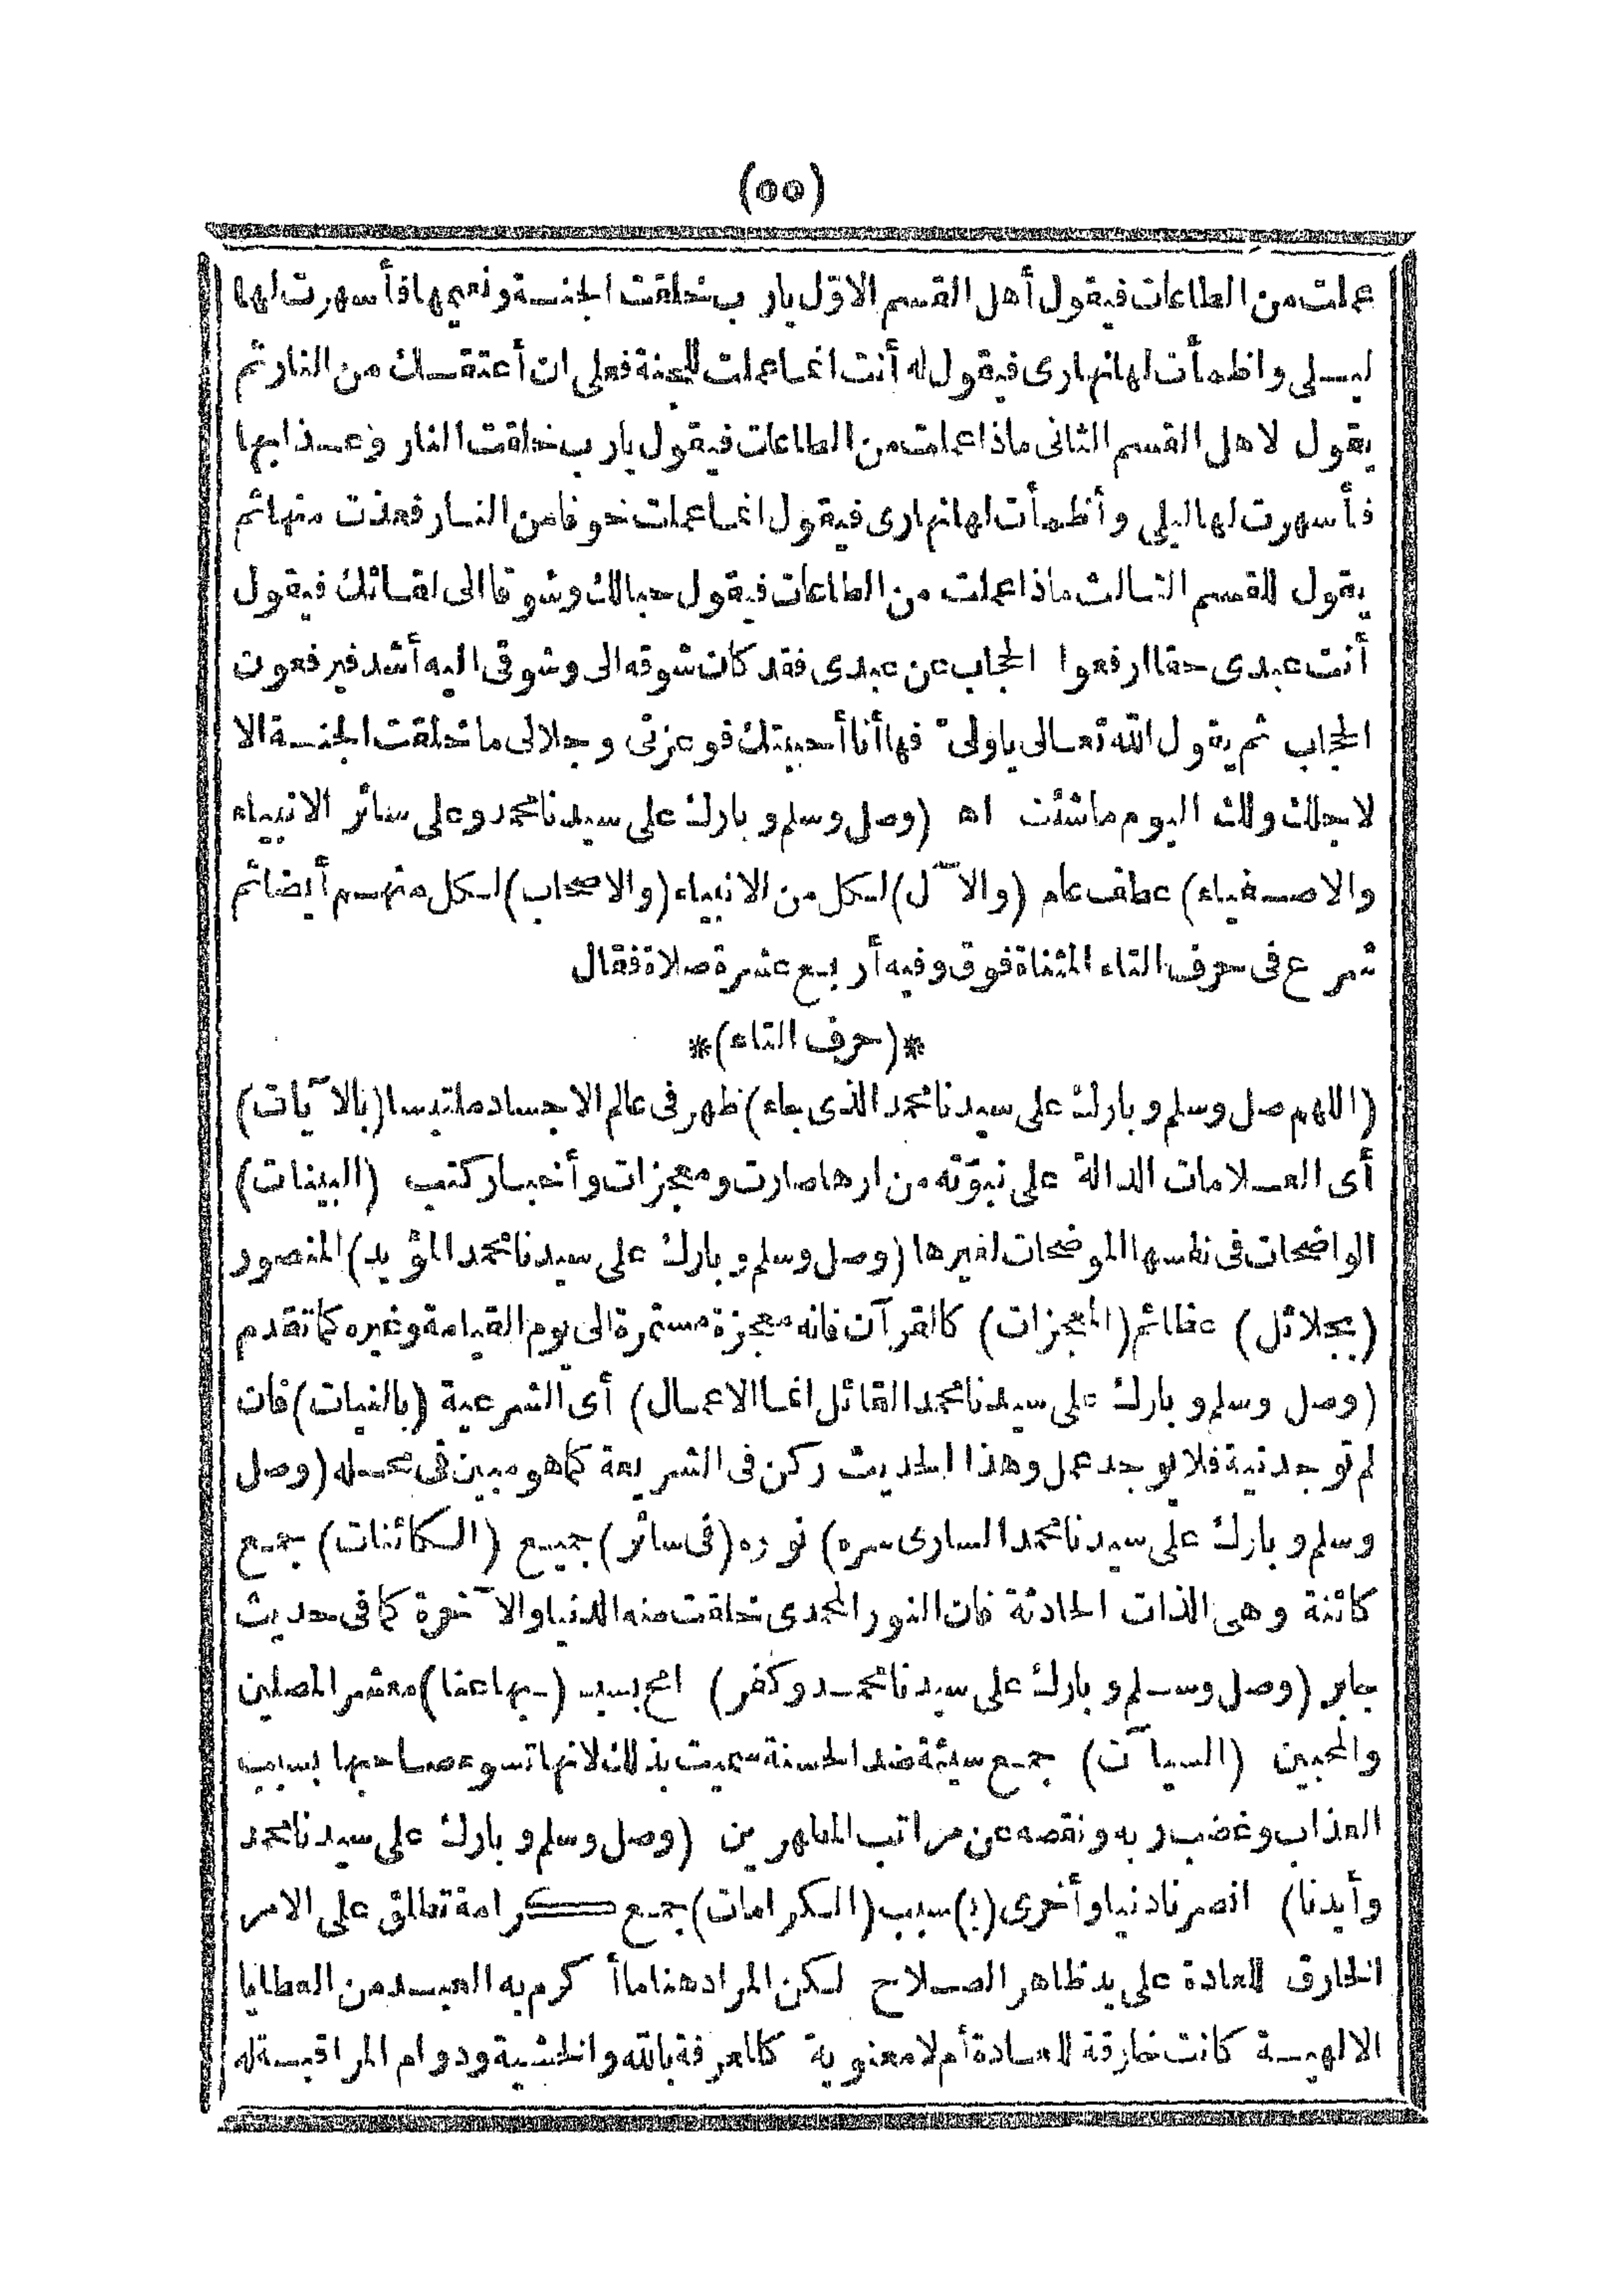 (٥٥)
عملت من الطاعات فيقول أهل القسم الاوّل يارب خلقت الجنة ونعيمها فأسهرت لها
ليلى واظمأت لها نهارى فيقول له أنت انما عملت للجنة فعلى ان أعتقك من النار ثم
يقول لاهل القسم الثانى ماذا عملت من الطاعات فيقول يارب خلقت النار وعذابها
فأسهرت لها ليلى وأظمأت لها نهارى فيقول انما عملت خوفا من النار فعذت منها ثم
يقول للقسم الثالث ماذا عملت من الطاعات فيقول حبالك وشوقا الى لقائك فيقول
أنت عبدى حقا ارفعوا الحجاب عن عبدى فقد كان شوقه الى وشوقى اليه أشد فيرفعون
الحجاب ثم يقول الله تعالى ياولىّ فها أنا أحببتك فوعزتى وجلالى ما خلقت الجنة الا
لاجلك ولك اليوم ماشئت اه (وصل وسلم وبارك على سيدنا محمد وعلى سائر الانبياء
والاصفياء) عطف عام (والآل) لكل من الانبياء (والاصحاب) لكل منهم أيضا ثم
شرع فى حرف التاء المثناة فوق وفيه أربع عشرة صلاة فقال
*(حرف التاء)*
(اللهم صل وسلم وبارك على سيدنا محمد الذى جاء) ظهر فى عالم الاجساد ملتبسا (بالآيات)
أى العلامات الدالة على نبوّته من ارهاصات ومعجزات وأخبار كتب (البينات)
الواضحات فى نفسها الموضحات لغيرها (وصل وسلم وبارك على سيدنا محمد المؤيد) المنصور
(بجلائل) عظائم (المعجزات) كالقرآن فانه معجزة مستمرة الى يوم القيامة وغيره كما تقدم
(وصل وسلم وبارك على سيدنا محمد القائل انما الاعمال) أى الشرعية (بالنيات) فان
لم توجد نية فلا يوجد عمل وهذا الحديث ركن فى الشريعة كما هو مبين فى محله (وصل
وسلم وبارك على سيدنا محمد السارى سره) نوره (فى سائر) جميع (الكائنات) جمع
كائنة وهى الذات الحادثة فان النور المحمدى خلقت منه الدنيا والآخرة كما فى حديث
جابر (وصل وسلم وبارك على سيدنا محمد وكفر) امح بسبب (بها عنا) معشر المصلين
والمحبين (السيآت) جمع سيئة ضد الحسنة سميت بذلك لانها تسوء صاحبها بسبب
العذاب وغضب ربه ونقصه عن مراتب المطهرين (وصل وسلم وبارك على سيدنا محمد
وأيدنا) انصرنا دنيا وأخرى (ب)سبب (الكرامات) جمع كرامة تطلق على الامر
الخارق للعادة على يد ظاهر الصلاح لكن المراد هنا ما أكرم به العبد من العطايا
الالهية كانت خارقة للعادة أم لا معنوية كالمعرفة بالله والخشية ودوام المراقبة له